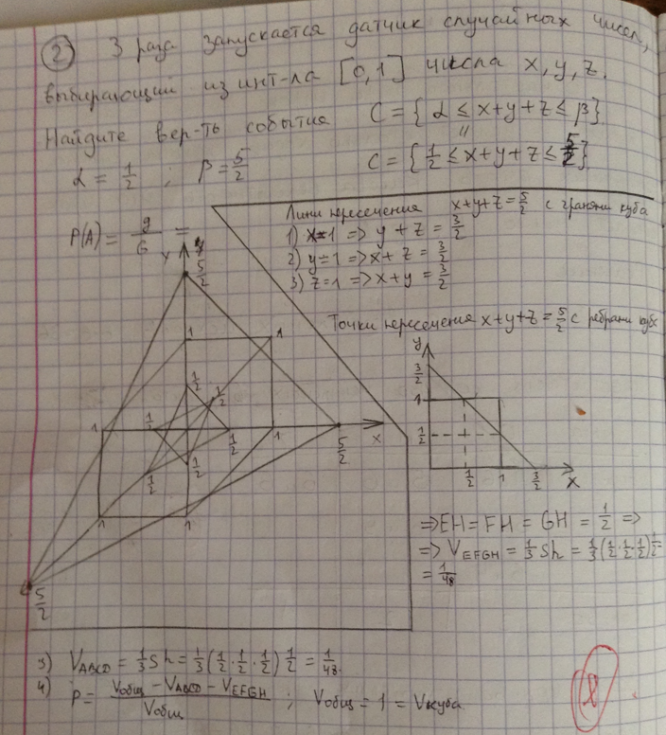 2) 3 раза запускается датчик случайных чисел,
выбирающий из инт-ла [0,1] числа x, y, z.
Найдите вер-ть события C = {α ≤ x+y+z ≤ β}
α = 1/2 ; β = 5/2
C = {1/2 ≤ x+y+z ≤ 5/2}
P(A) = g/G =
Лини пересечения x+y+z = 5/2 с гранями куба
1) x=1 => y + z = 3/2
2) y=1 => x + z = 3/2
3) z=1 => x + y = 3/2
Точки пересечения x+y+z = 5/2 с ребрами куба
5/2
1
1
1/2
1/2
1
1/2
1/2
1
5/2
x
1/2
1/2
1
1
5/2
y
3/2
1
1/2
1/2
1
3/2
x
=> EH = FH = GH = 1/2 =>
=> V EFGH = 1/3 Sh = 1/3 (1/2 · 1/2 · 1/2) 1/2 =
= 1/48
3) V ABCD = 1/3 Sh = 1/3 (1/2 · 1/2 · 1/2) 1/2 = 1/48.
4) P = (Vобщ - VABCD - VEFGH) / Vобщ ; Vобщ = 1 = Vкуба